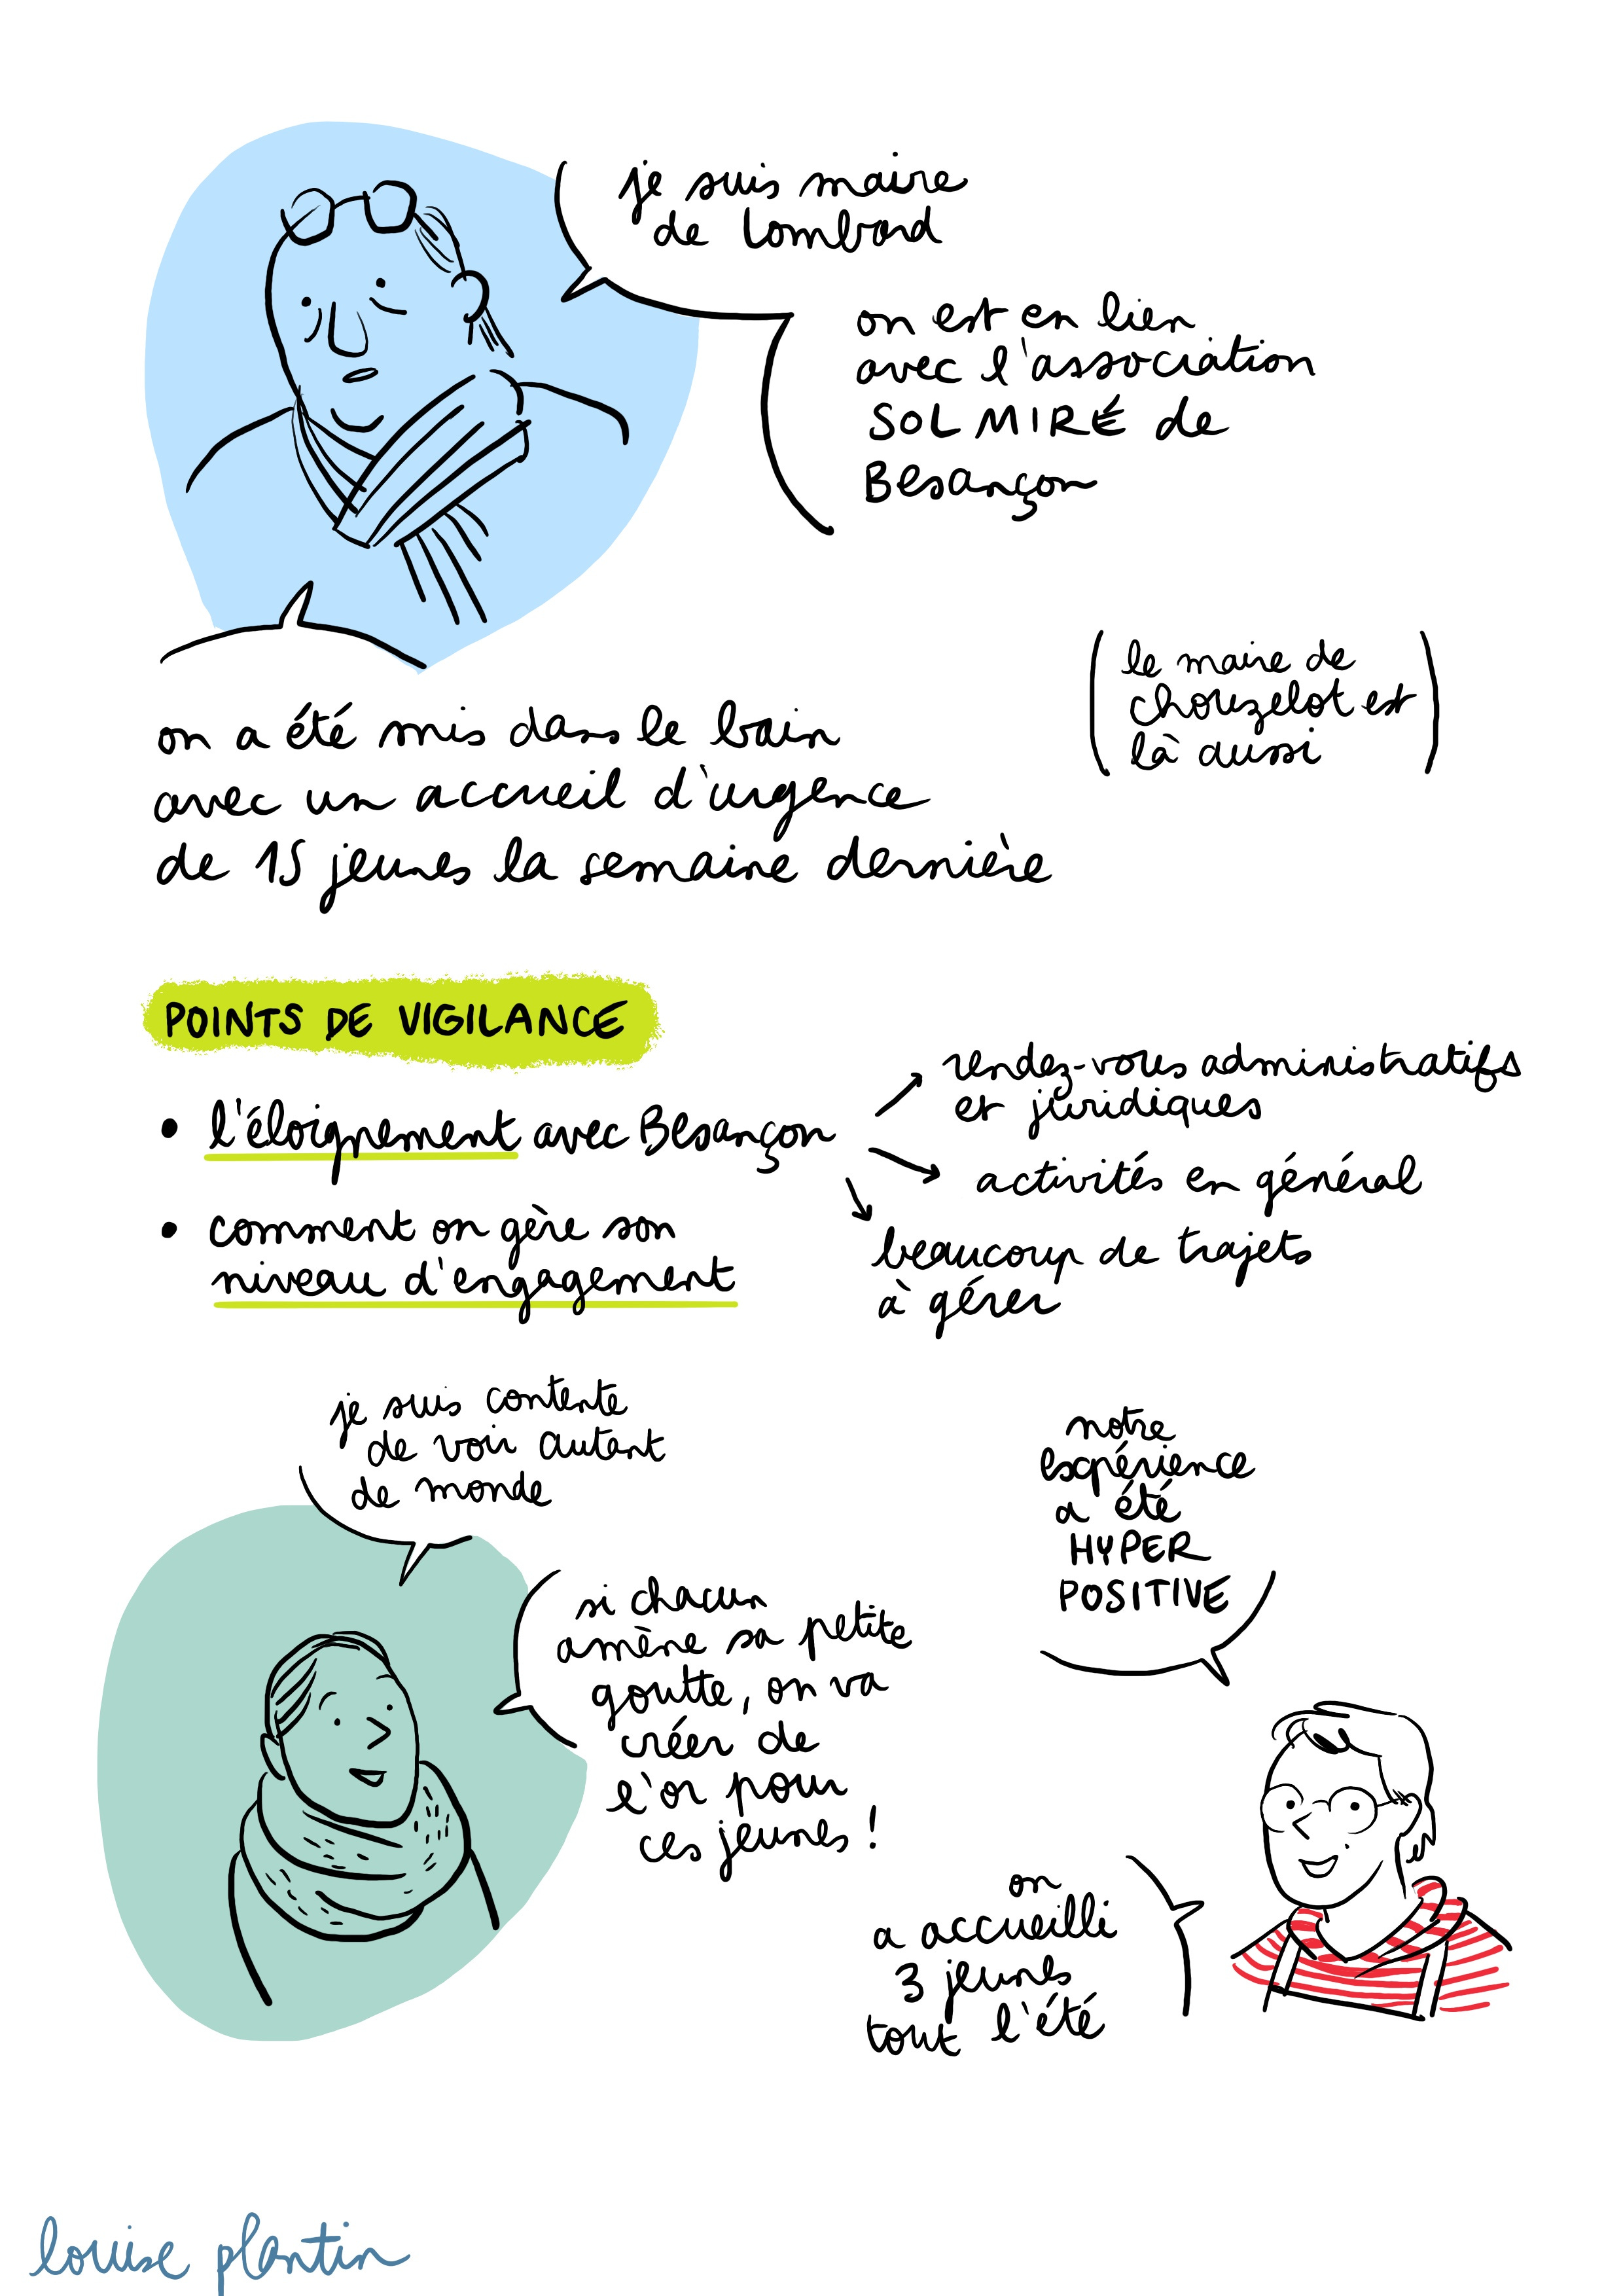 je suis maire
de Lombard
on est en lien
avec l'association
SOLMIRÉ de
Besançon
(le maire de
chouzelot est
là aussi)
on a été mis dans le bain
avec un accueil d'urgence
de 15 jeunes la semaine dernière
POINTS DE VIGILANCE
• l'éloignement avec Besançon
rendez-vous administratifs
et juridiques
activités en général
beaucoup de trajets
à gérer
• comment on gère son
niveau d'engagement
je suis contente
de voir autant
de monde
si chacun
amène sa petite
goutte, on va
créer de
l'or pour
ces jeunes !
notre
expérience
a été
HYPER
POSITIVE
on
a accueilli
3 jeunes
tout l'été
louise plantin